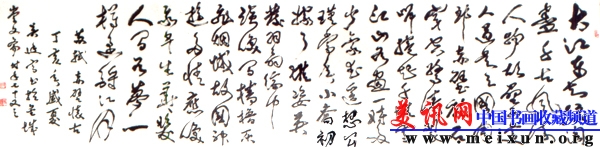 大江东去浪淘
尽千古风流
人物故垒西
边人道是三国周
郎赤壁乱石
穿空惊涛拍
岸卷起千堆雪
江山如画一时多
少豪杰遥想公
瑾当年小乔初
嫁了雄姿英
发羽扇纶巾
谈笑间樯橹灰
飞烟灭故国神
游多情应笑
我早生华发
人间如梦一
樽还酹江月
苏轼赤壁怀古
丁亥年盛夏
书于羊城
时年七十又三
美讯网 中国书画收藏频道
www.meixun.org